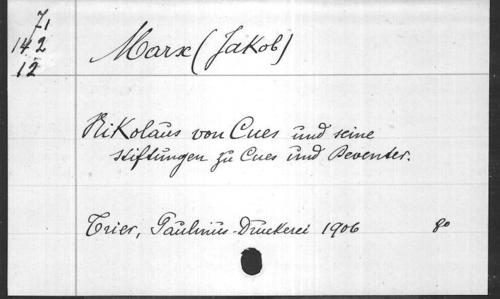 71
142
12
Marx (Jakob)
Nikolaus von Cues und seine
Stiftungen zu Cues und Deventer.
Trier, Paulinus-Druckerei 1906 go